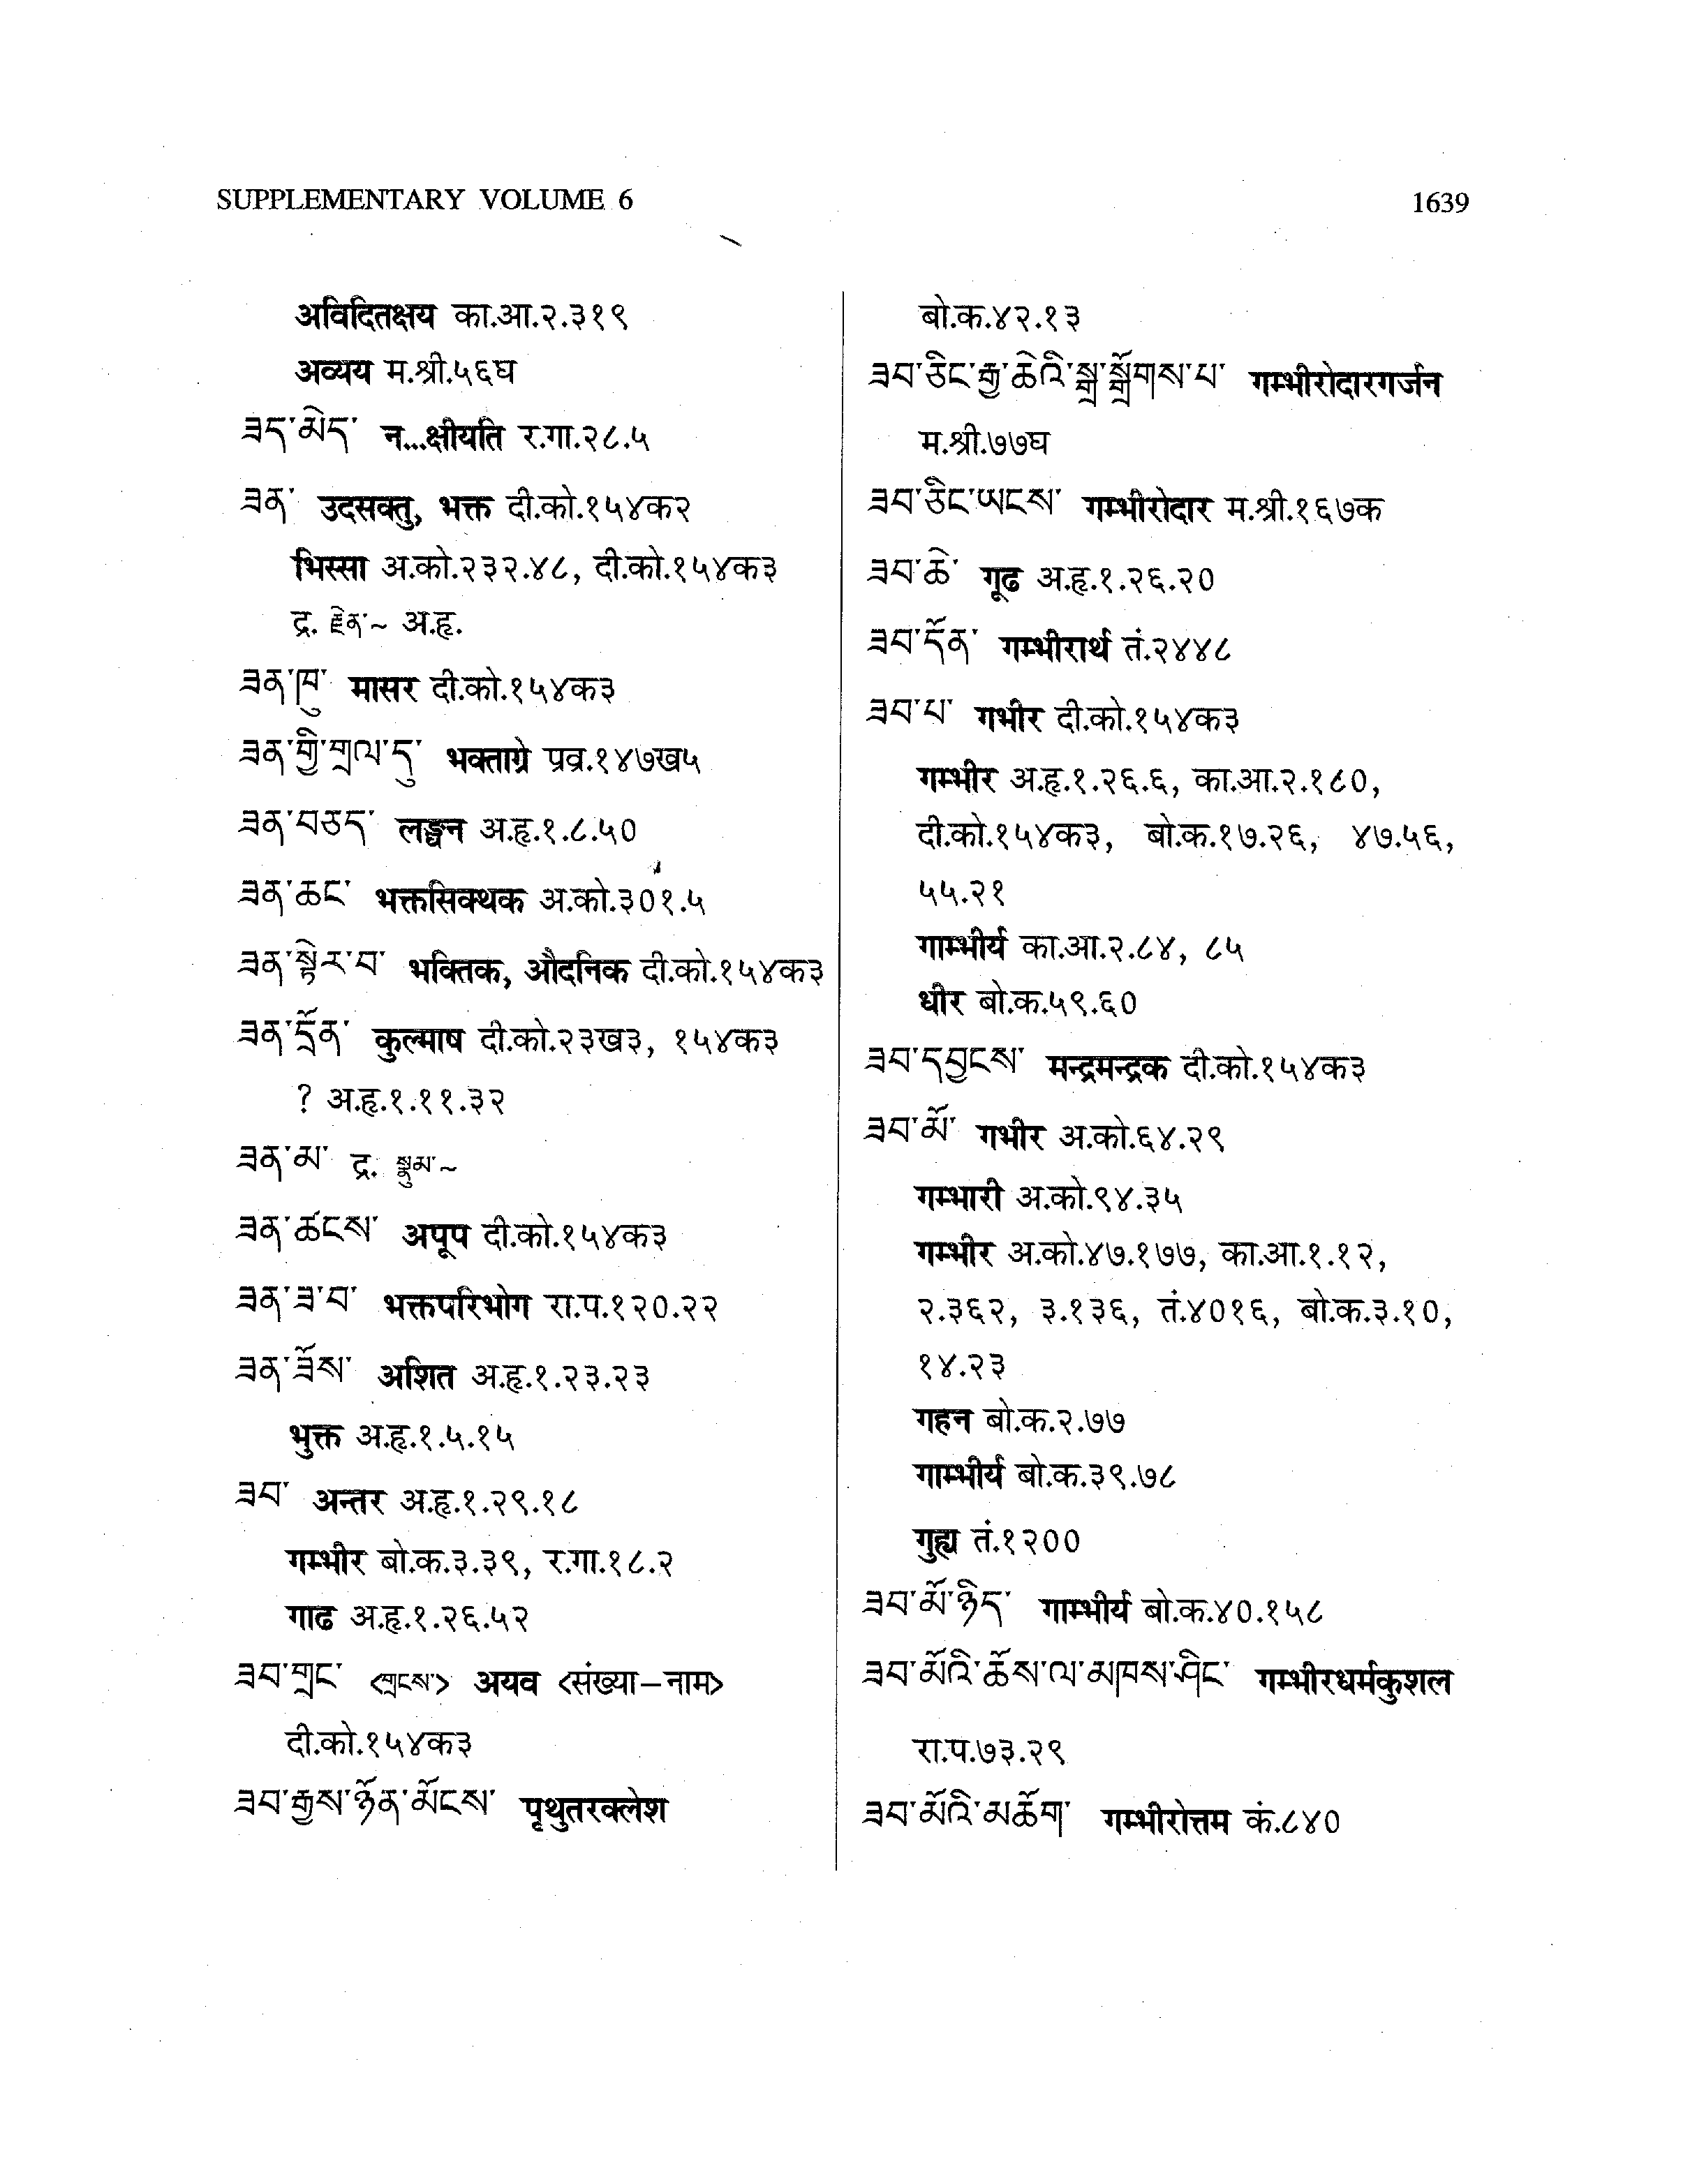 SUPPLEMENTARY VOLUME 6
1639
अविदितक्षय का.आ.२.३१९
अव्यय म.श्री.५६घ
ཟད་མེད་ न...क्षीयति र.गा.२८.५
ཟན་ उदसक्तु, भक्त दी.को.१५४क२
भिस्सा अ.को.२३२.४८, दी.को.१५४क३
द्र. རྫེན་~ अ.हृ.
ཟན་ཁུ་ मासर दी.को.१५४क३
ཟན་གྱི་གྲལ་དུ་ भक्ताग्रे प्रव्र.१४७ख५
ཟན་བཅད་ लङ्घन अ.हृ.१.८.५०
ཟན་ཆང་ भक्तसिक्थक अ.को.३०१.५
ཟན་སྟེར་བ་ भक्तिक, औदनिक दी.को.१५४क३
ཟན་དྲོན་ कुल्माष दी.को.२३ख३, १५४क३
? अ.हृ.१.११.३२
ཟན་མ་ द्र. སྣུམ་~
ཟན་ཚངས་ अपूप दी.को.१५४क३
ཟན་ཟ་བ་ भक्तपरिभोग रा.प.१२०.२२
ཟན་ཟོས་ अशित अ.हृ.१.२३.२३
भुक्त अ.हृ.१.५.१५
ཟབ་ अन्तर अ.हृ.१.२९.१८
गम्भीर बो.क.३.३९, र.गा.१८.२
गाढ अ.हृ.१.२६.५२
ཟབ་གྲང་ <གྲངས་> अयव <संख्या–नाम>
दी.को.१५४क३
ཟབ་རྒྱས་ཉོན་མོངས་ पृथुतरक्लेश
बो.क.४२.१३
ཟབ་ཅིང་རྒྱ་ཆེའི་སྒྲ་སྒྲོགས་པ་ गम्भीरोदारगर्जन
म.श्री.७७घ
ཟབ་ཅིང་ཡངས་ गम्भीरोदार म.श्री.१६७क
ཟབ་ཆེ་ गूढ अ.हृ.१.२६.२०
ཟབ་དོན་ गम्भीरार्थ तं.२४४८
ཟབ་པ་ गभीर दी.को.१५४क३
गम्भीर अ.हृ.१.२६.६, का.आ.२.१८०,
दी.को.१५४क३, बो.क.१७.२६, ४७.५६,
५५.२१
गाम्भीर्य का.आ.२.८४, ८५
धीर बो.क.५९.६०
ཟབ་དབྱངས་ मन्द्रमन्द्रक दी.को.१५४क३
ཟབ་མོ་ गभीर अ.को.६४.२९
गम्भारी अ.को.९४.३५
गम्भीर अ.को.४७.१७७, का.आ.१.१२,
२.३६२, ३.१३६, तं.४०१६, बो.क.३.१०,
१४.२३
गहन बो.क.२.७७
गाम्भीर्य बो.क.३९.७८
गुह्य तं.१२००
ཟབ་མོ་ཉིད་ गाम्भीर्य बो.क.४०.१५८
ཟབ་མོའི་ཆོས་ལ་མཁས་ཤིང་ गम्भीरधर्मकुशल
रा.प.७३.२९
ཟབ་མོའི་མཆོག་ गम्भीरोत्तम कं.८४०